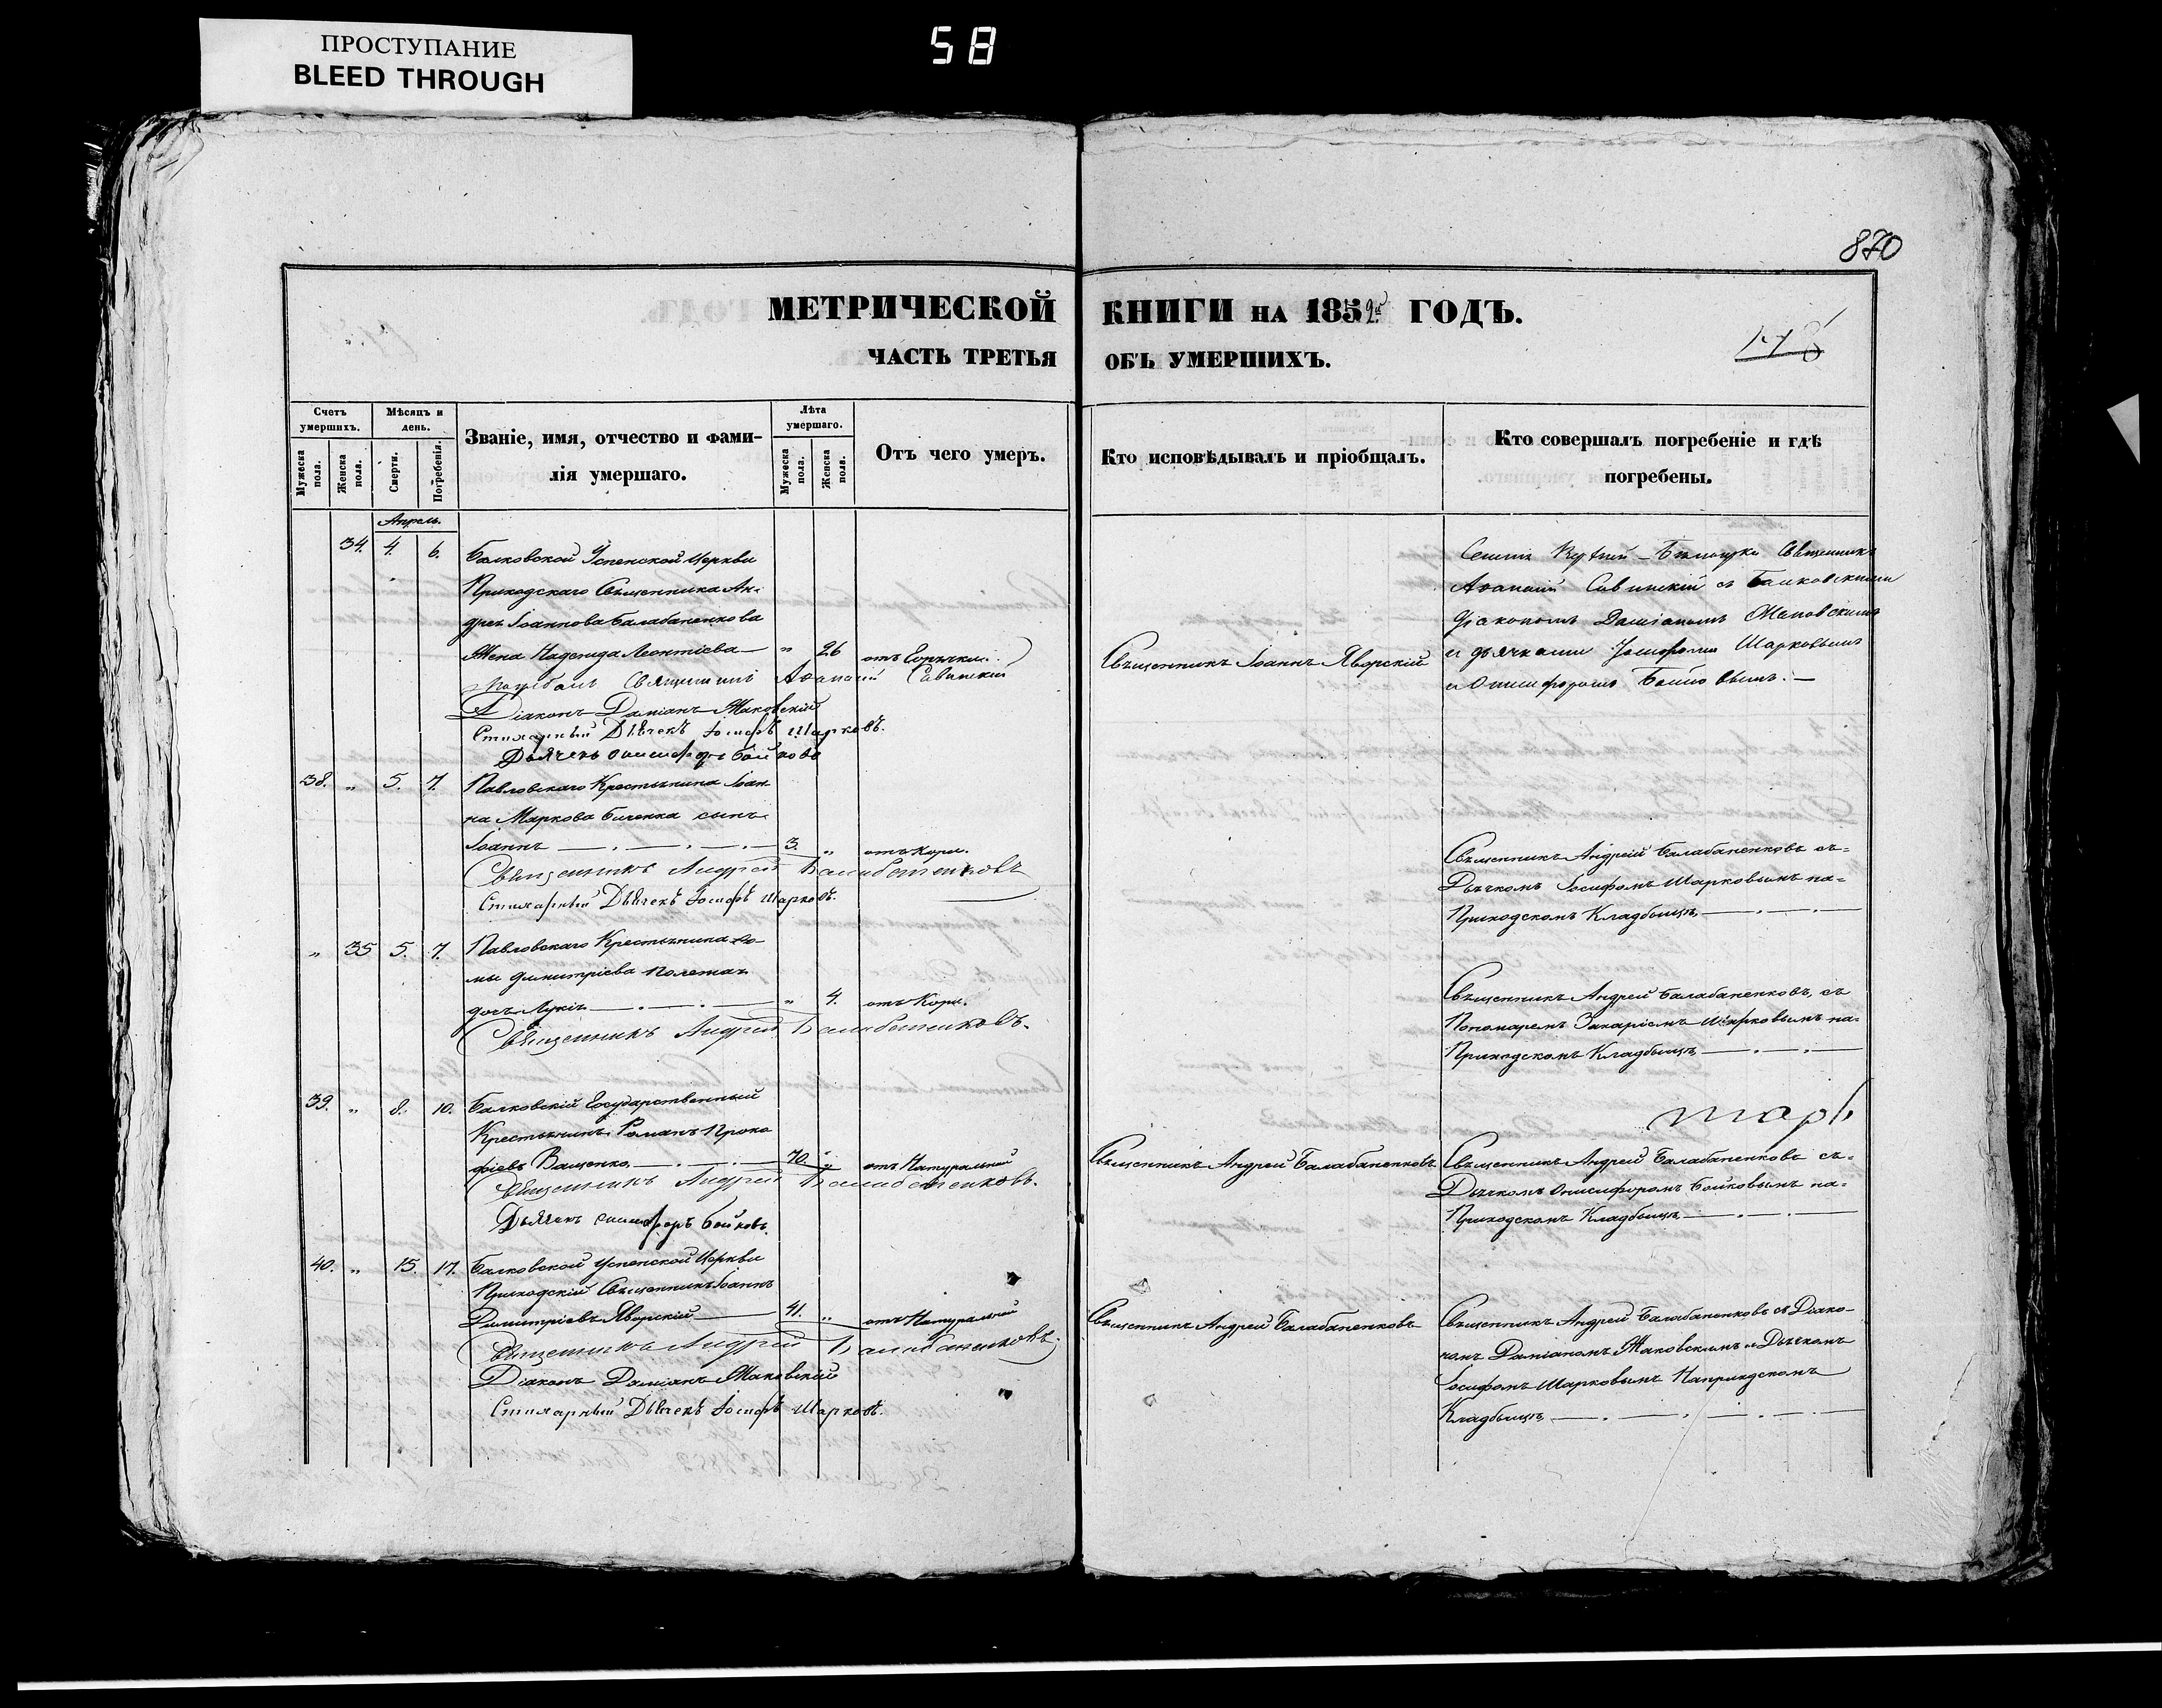 ПРОСТУПАНИЕ
BLEED THROUGH
58
870
МЕТРИЧЕСКОЙ КНИГИ НА 1852й ГОДЪ.
ЧАСТЬ ТРЕТЬЯ ОБЪ УМЕРШИХЪ.
178
Счетъ умершихъ.
Мужеска пола.
Женска пола.
Мѣсяцъ и день.
Смерти.
Погребенія.
Званіе, имя, отчество и фами-
лія умершаго.
Лѣта умершаго.
Мужеска пола.
Женска пола.
Отъ чего умеръ.
Кто исповѣдывалъ и пріобщалъ.
Кто совершалъ погребеніе и гдѣ
погребены.
Апрель.
34. 4. 6. Балковской Успенской Церкви
Приходскаго Священника Ан-
дрея Іоаннова Балабаненкова
Жена Надежда Леонтіева — " 26 отъ Горячки.
Священникъ Іоаннъ Яворскій
Священникъ
Аѳанасій Савинскій съ Балковскими
Діакономъ Даміаномъ Жаковскимъ
и дьячками Іосифомъ Шарковымъ
и Онисифоромъ Бойковымъ. —
Священникъ Аѳанасій Савинскій
Діаконъ Даміанъ Жаковскій
Стихарный Дьячекъ Іосифъ Шарковъ.
Дьячекъ Онисифоръ Бойковъ
38. " 5. 7. Павловскаго Крестьянина Іоан-
на Маркова сынъ
Іоаннъ — . — . — . — 3. " отъ Кори.
Священникъ Андрей Балабаненковъ
Стихарный Дьячекъ Іосифъ Шарковъ.
Священникъ Андрей Балабаненковъ съ=
Дьячкомъ Іосифомъ Шарковымъ на=
Приходскомъ Кладбищѣ — . — . —
" 35 5. 7. Павловскаго Крестьянина Ѳо-
мы Димитріева
дочь — . — . — " 4. отъ Кори.
Священникъ Андрей Балабаненковъ.
Священникъ Андрей Балабаненковъ, съ
Пономаремъ Захаріемъ Шарковымъ на=
Приходскомъ Кладбищѣ — . — . —
39. " 8. 10. Балковскій Государственный
Крестьянинъ Романъ Проко
фіевъ Ващенко. — . — . — 70. " отъ Натуральной
Священникъ Андрей Балабаненковъ.
Дьячекъ Онисифоръ Бойковъ.
Священникъ Андрей Балабаненковъ
Священникъ Андрей Балабаненковъ съ=
Дьячкомъ Онисифоромъ Бойковымъ на=
Приходскомъ Кладбищѣ — . — . —
40. " 15. 17. Балковской Успенской Церкви
Приходскій Священникъ Іоаннъ
Димитріевъ Яворскій — 41. " отъ Натуральной
Священникъ Андрей Балабаненковъ.
Діаконъ Даміанъ Жаковскій
Стихарный Дьячекъ Іосифъ Шарковъ.
Священникъ Андрей Балабаненковъ
Священникъ Андрей Балабаненковъ съ Діако-
номъ Даміаномъ Жаковскимъ и Дьячкомъ
Іосифомъ Шарковымъ на приходскомъ
Кладбищѣ — . — . — . — . —